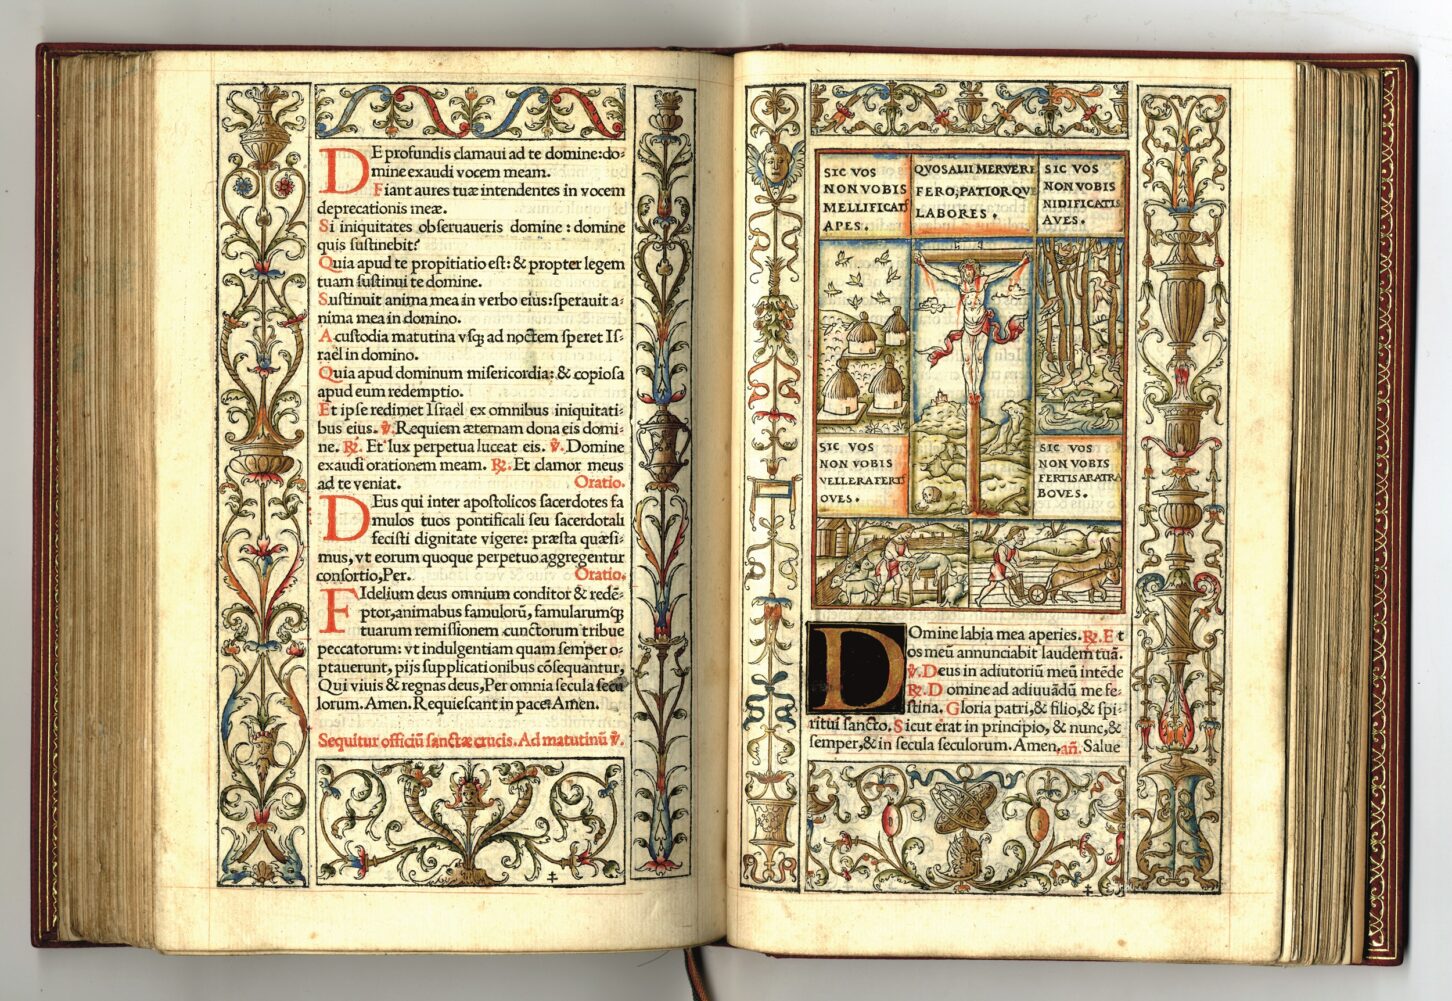 DE profundis clamaui ad te domine:do-
mine exaudi vocem meam.
Fiant aures tuæ intendentes in vocem
deprecationis meæ.
Si iniquitates obſeruaueris domine : domine
quis ſuſtinebit?
Quia apud te propitiatio eſt: & propter legem
tuam ſuſtinui te domine.
Suſtinuit anima mea in verbo eius:ſperauit a-
nima mea in domino.
A cuſtodia matutina vſq; ad noctem ſperet Iſ-
raël in domino.
Quia apud dominum miſericordia: & copioſa
apud eum redemptio.
Et ipſe redimet Iſraël ex omnibus iniquitati-
bus eius. ℣. Requiem æternam dona eis domi-
ne. ℟. Et lux perpetua luceat eis. ℣. Domine
exaudi orationem meam. ℟. Et clamor meus
ad te veniat. Oratio.
DEus qui inter apoſtolicos ſacerdotes fa
mulos tuos pontificali ſeu ſacerdotali
feciſti dignitate vigere: præſta quæſi-
mus, vt eorum quoque perpetuo aggregentur
conſortio, Per. Oratio.
FIdelium deus omnium conditor & redẽ-
ptor, animabus famulorũ, famularumq;
tuarum remiſſionem cunctorum tribue
peccatorum: vt indulgentiam quam ſemper o-
ptauerunt, pijs ſupplicationibus cõſequantur,
Qui viuis & regnas deus, Per omnia ſecula ſecu
lorum. Amen. Requieſcant in pace. Amen.
Sequitur officiũ ſanctæ crucis. Ad matutinũ ℣.
SIC VOS
NON VOBIS
MELLIFICATIS
APES.
QVOS ALII MERVERE
FERO; PATIORQVE
LABORES.
SIC VOS
NON VOBIS
NIDIFICATIS
AVES.
SIC VOS
NON VOBIS
VELLERA FERTIS
OVES.
SIC VOS
NON VOBIS
FERTIS ARATRA
BOVES.
DOmine labia mea aperies. ℟. Et
os meũ annunciabit laudem tuã.
℣. Deus in adiutoriũ meũ intẽde
℟. Domine ad adiuuãdũ me fe-
ſtina. Gloria patri, & filio, & ſpi-
ritui ſancto. Sicut erat in principio, & nunc, &
ſemper, & in ſecula ſeculorum. Amen. añ. Salue